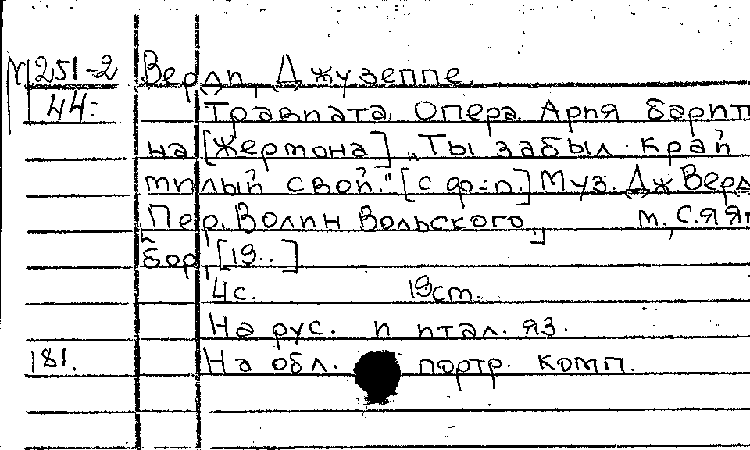 М 251-2 Верди, Джузеппе
44: Травиата. Опера. Ария барит
на [Жермона] „Ты забыл край
милый свой." [с ф=п.] Муз. Дж Верд
Пер. Волин Вольского. М, С.Я Яг
бор, [19..]
4 с. 19 cm.
На рус. и итал. яз.
181. На обл. портр. комп.